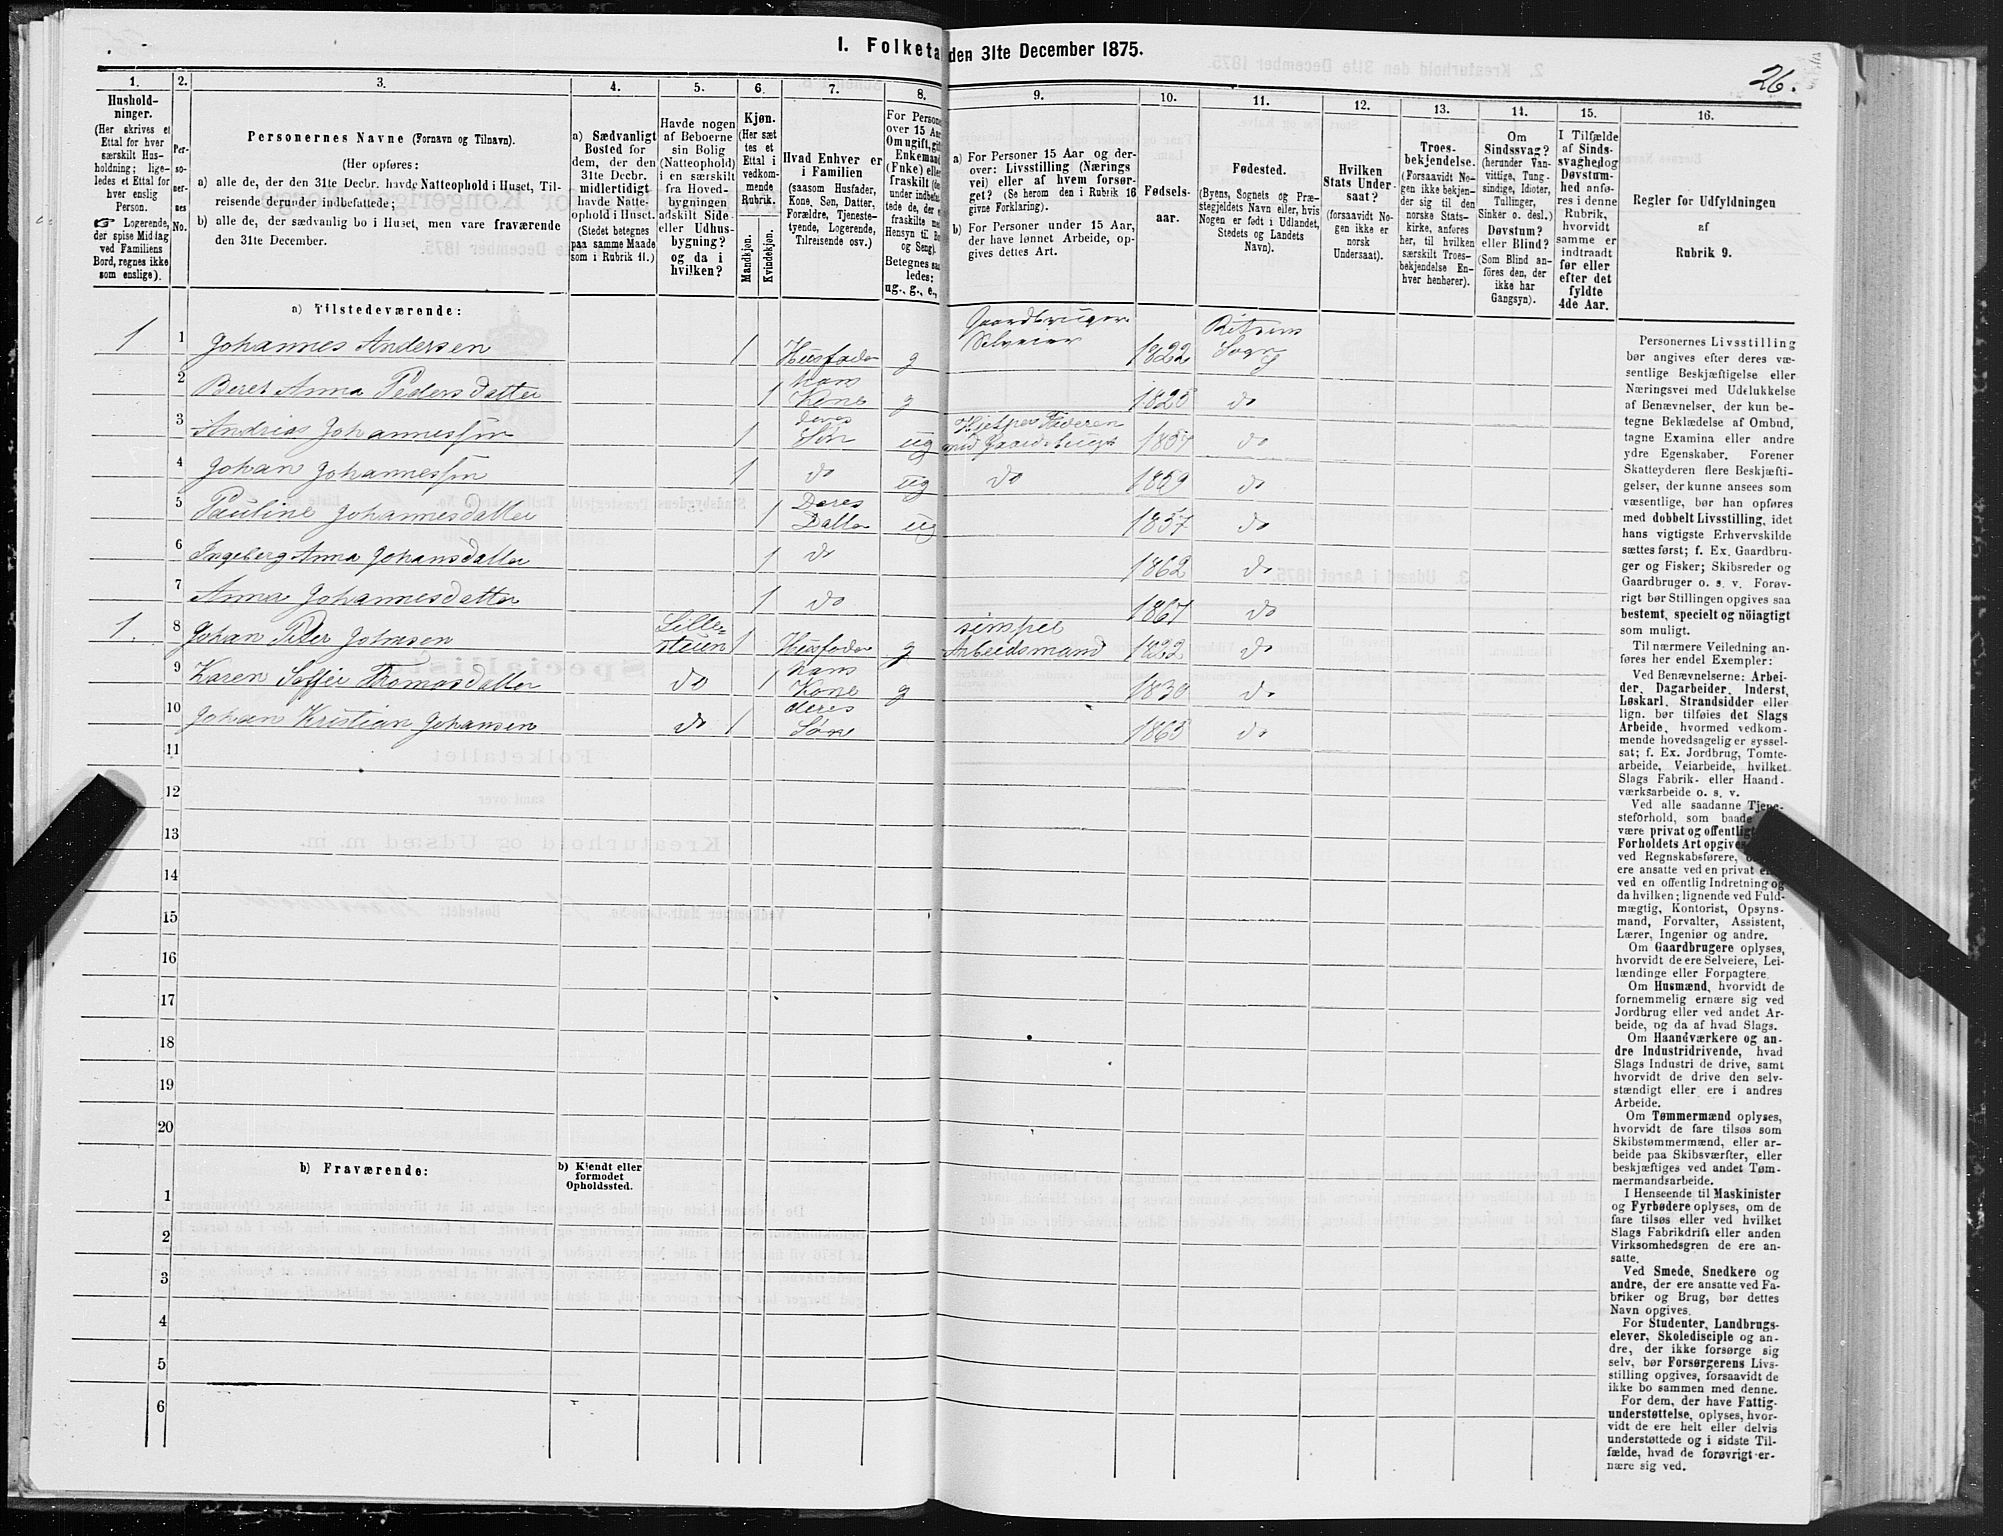 I. Folketa den 31te December 1875.
26.
1. 2. 3. 4. 5. 6. 7. 8. 9. 10. 11. 12. 13. 14. 15. 16.
Hushold-
ninger.
(Her skrives et
Ettal for hver
særskilt Hus-
holdning; lige-
ledes et Ettal for
hver enslig
Person.
☞ Logerende,
der spise Middag
ved Familiens
Bord, regnes ikke
som enslige).
Per-
so-
ner-
nes
No.
Personernes Navne (Fornavn og Tilnavn).
(Her opføres:
a) alle de, der den 31te Decbr. havde Natteophold i Huset, Til-
reisende derunder indbefattede;
b) alle de, der sædvanlig bo i Huset, men vare fraværende
den 31te December.
a) Sædvanligt
Bosted for
dem, der den
31te Decbr.
midlertidigt
havde Natte-
ophold i Huset.
(Stedet betegnes
paa samme Maade
som i Rubrik 11.)
Havde nogen
af Beboerne
sin Bolig
(Natteophold)
i en særskilt
fra Hoved-
bygningen
adskilt Side-
eller Udhus-
bygning?
og da i
hvilken?
Kjøn.
(Her sæt
tes et
Ettal i
vedkom-
mende
Rubrik.
Mandkjøn.
Kvindekjøn.
Hvad Enhver er
i Familien
(saasom Husfader,
Kone, Søn, Datter,
Forældre, Tjeneste-
tyende, Logerende,
Tilreisende osv.)
For Persone
over 15 Aar
Om ugift, gift
Enkemand
(Enke) eller
fraskilt
under indbefat-
tede de, der
fraskilte m
Hensyn til B
og Seng).
Betegnes saa
ledes:
ug., g., e.,
a) For Personer 15 Aar og der-
over: Livsstilling (Nærings
vei) eller af hvem forsør-
get? (Se herom den i Rubrik 16
givne Forklaring).
b) For Personer under 15 Aar,
der have lønnet Arbeide, op-
gives dettes Art.
Fødsels-
aar.
Fødested.
(Byens, Sognets og Præ-
stegjeldets Navn eller, hvis
Nogen er født i Udlandet,
Stedets og Landets
Navn).
Hvilken
Stats Under-
saat?
(forsaavidt No-
gen ikke er
norsk
Undersaat).
Troes-
bekjendelse.
(Forsaavidt No-
gen ikke bekjen-
der sig til den
norske Stats-
kirke, anføres
her, til hvilken
særskilt Troes-
bekjendelse En-
hver henhører).
Om
Sindssvag?
(herunder Van-
vittige, Tung-
sindige, Idioter,
Tullinger,
Sinker o. desl.)
Døvstum?
eller Blind?
(Som Blind an-
føres den, der
ikke har
Gangsyn).
I Tilfælde
af Sinds-
svaghed og
Døvstum-
hed anfø-
res i denne
Rubrik,
hvorvidt
samme er
indtraadt
før eller
efter det
fyldte
4de Aar.
Regler for Udfyldningen
af
Rubrik 9.
a) Tilstedeværende:
1 1 Johannes Andersen 1 Husfader g Gaardbruger Selveier 1822 Bitsens Sogn
2 Beret Anna Pedersdatter 1 hans Kone g 1825 do
3 Andreas Johannessøn 1 deres Søn ug Hjelper Faderen med Gaardsbruget 1857 do
4 Johan Johannessøn 1 do ug do 1859 do
5 Pauline Johannesdatter 1 Deres Datter ug 1857 do
6 Ingeberg Anna Johansdatter 1 do 1862 do
7 Anna Johannesdatter 1 do 1867 do
1. 8 Johan Peder Johnsen Lille-stuen 1 Husfader g simpel Arbeidsmand 1822 do
9 Karen Soffie Thomasdatter do 1 hans Kone g 1830 do
10 Johan Kristian Johansen do 1 deres Søn 1865 do
11
12
13
14
15
16
17
18
19
20
b) Fraværende:
b) Kjendt eller
formodet
Opholdssted.
1
2
3
4
5
6
Personernes Livsstilling
bør angives efter deres væ-
sentlige Beskjæftigelse eller
Næringsvei med Udelukkelse
af Benævnelser, der kun be-
tegne Beklædelse af Ombud,
tagne Examina eller andre
ydre Egenskaber. Forener
Skatteyderen flere Beskjæfti-
gelser, der kunne ansees som
væsentlige, bør han opføres
med dobbelt Livsstilling, idet
hans vigtigste Erhvervskilde
sættes først; f. Ex. Gaardbru-
ger og Fisker; Skibsreder og
Gaardbruger o. s. v. Forøv-
rigt bør Stillingen opgives saa
bestemt, specielt og nöiagtigt
som muligt.
Til nærmere Veiledning an-
føres her endel Exempler:
Ved Benævnelserne: Arbei-
der, Dagarbeider, Inderst,
Løskarl, Strandsidder eller
lign. bør tilføies det Slags
Arbeide, hvormed vedkom-
mende hovedsagelig er syssel-
sat; f. Ex. Jordbrug, Tomte-
arbeide, Veiarbeide, hvilket
Slags Fabrik- eller Haand-
værksarbeide o. s. v.
Ved alle saadanne Tjene-
steforhold, som baade
være privat og offentligt
Forholdets Art opgives
ved Regnskabsførere,
ere ansatte ved en privat
ved en offentlig Indretning og
da hvilken; lignende ved Fuld-
mægtig, Kontorist, Opsyns-
mand, Forvalter, Assistent,
Lærer, Ingeniør og andre.
Om Gaardbrugere oplyses,
hvorvidt de ere Selveiere, Lei-
lændinge eller Forpagtere.
Om Husmænd, hvorvidt de
fornemmelig ernære sig ved
Jordbrug eller ved andet Ar-
beide, og da af hvad Slags.
Om Haandværkere og an-
dre Industridrivende, hvad
Slags Industri de drive, samt
hvorvidt de drive den selv-
stændigt eller ere i andres
Arbeide.
Om Tømmermænd oplyses,
hvorvidt de fare tilsøs som
Skibstømmermænd, eller ar-
beide paa Skibsværfter, eller
beskjæftiges ved andet Tøm-
mermandsarbeide.
I Henseende til Maskinister
og Fyrbødere oplyses, om de
fare tilsøs eller ved hvilket
Slags Fabrikdrift eller anden
Virksomhedsgren de ere an-
satte.
Ved Smede, Snedkere og
andre, der ere ansatte ved Fa-
briker og Brug, bør dettes
Navn opgives.
For Studenter, Landbrugs-
elever, Skoledisciple og an-
dre, der ikke forsørge sig
selv, bør Forsørgerens Livs-
stilling opgives, forsaavidt de
ikke bo sammen med denne.
For dem, der have Fattig-
understøttelse, oplyses, hvor-
vidt de ere helt eller delvis
understøttede og i sidste Til-
fælde, hvad de forøvrigt er-
nære sig ved.